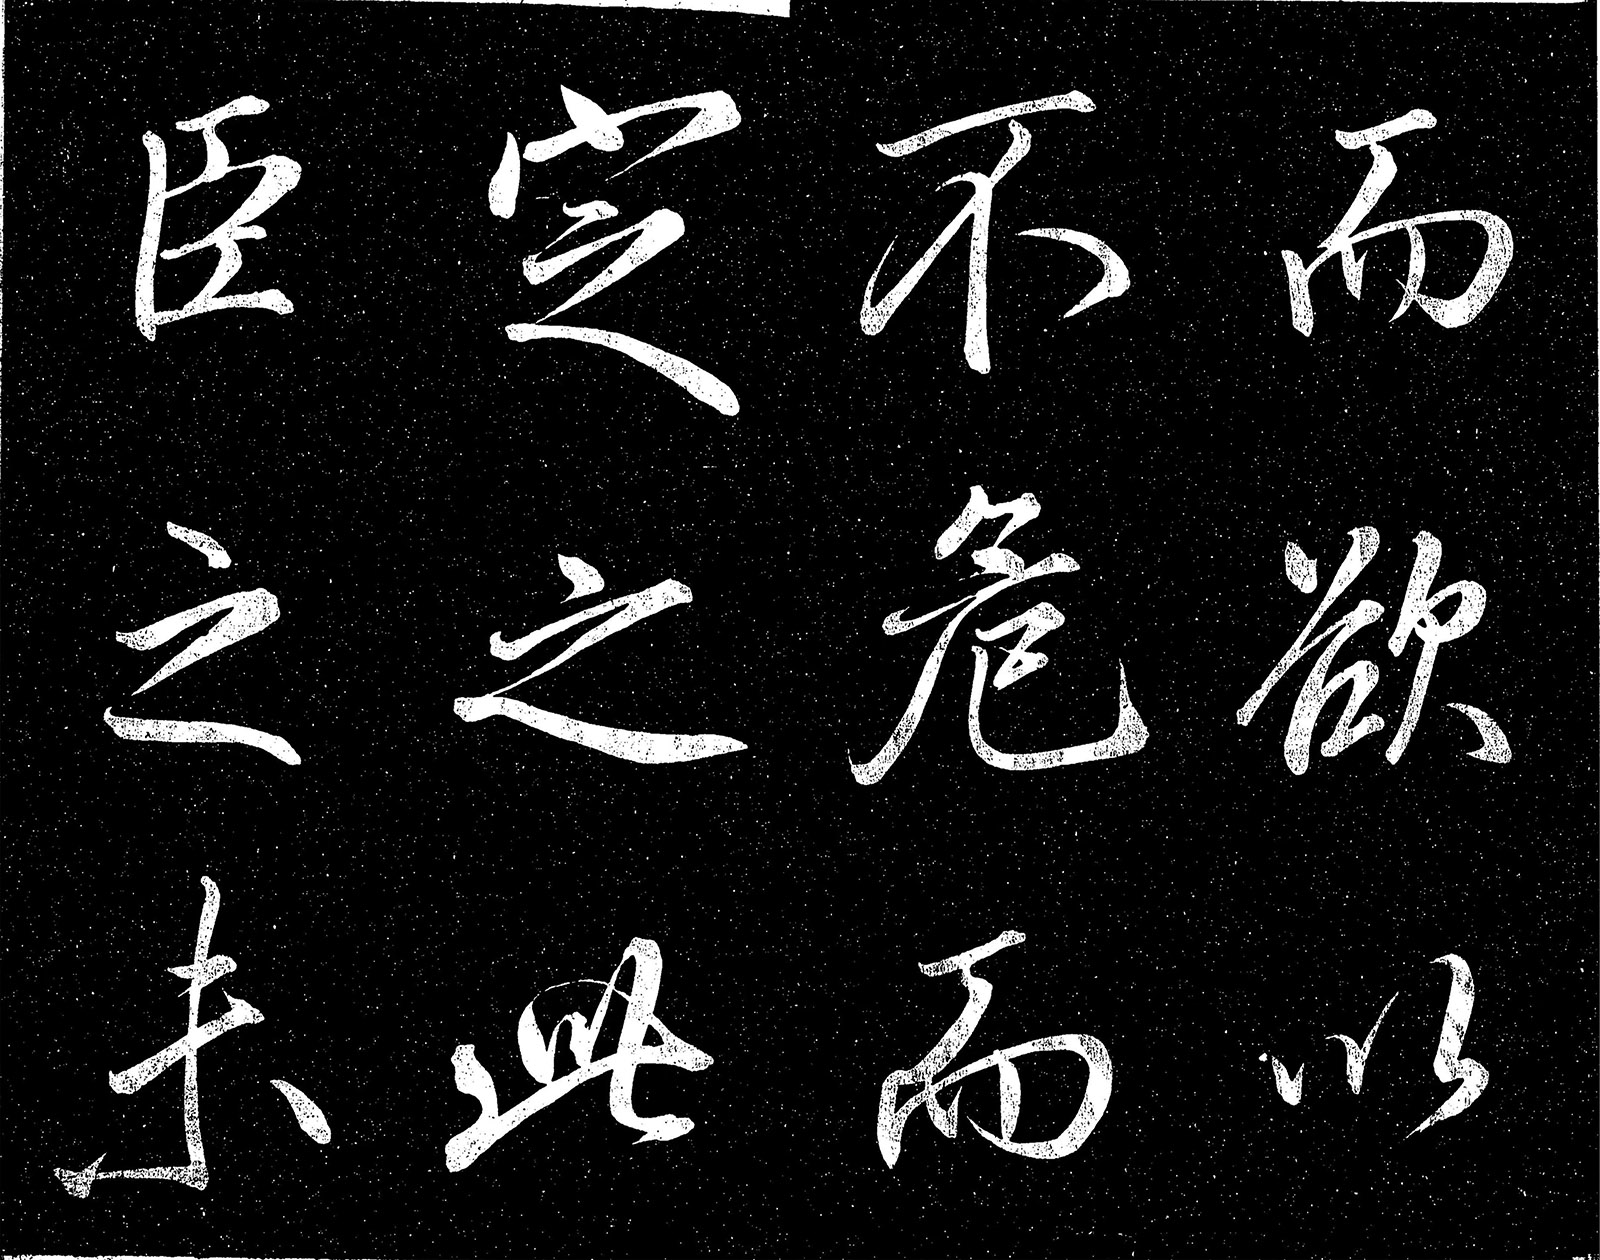 而欲以
不危而
定之此
臣之未